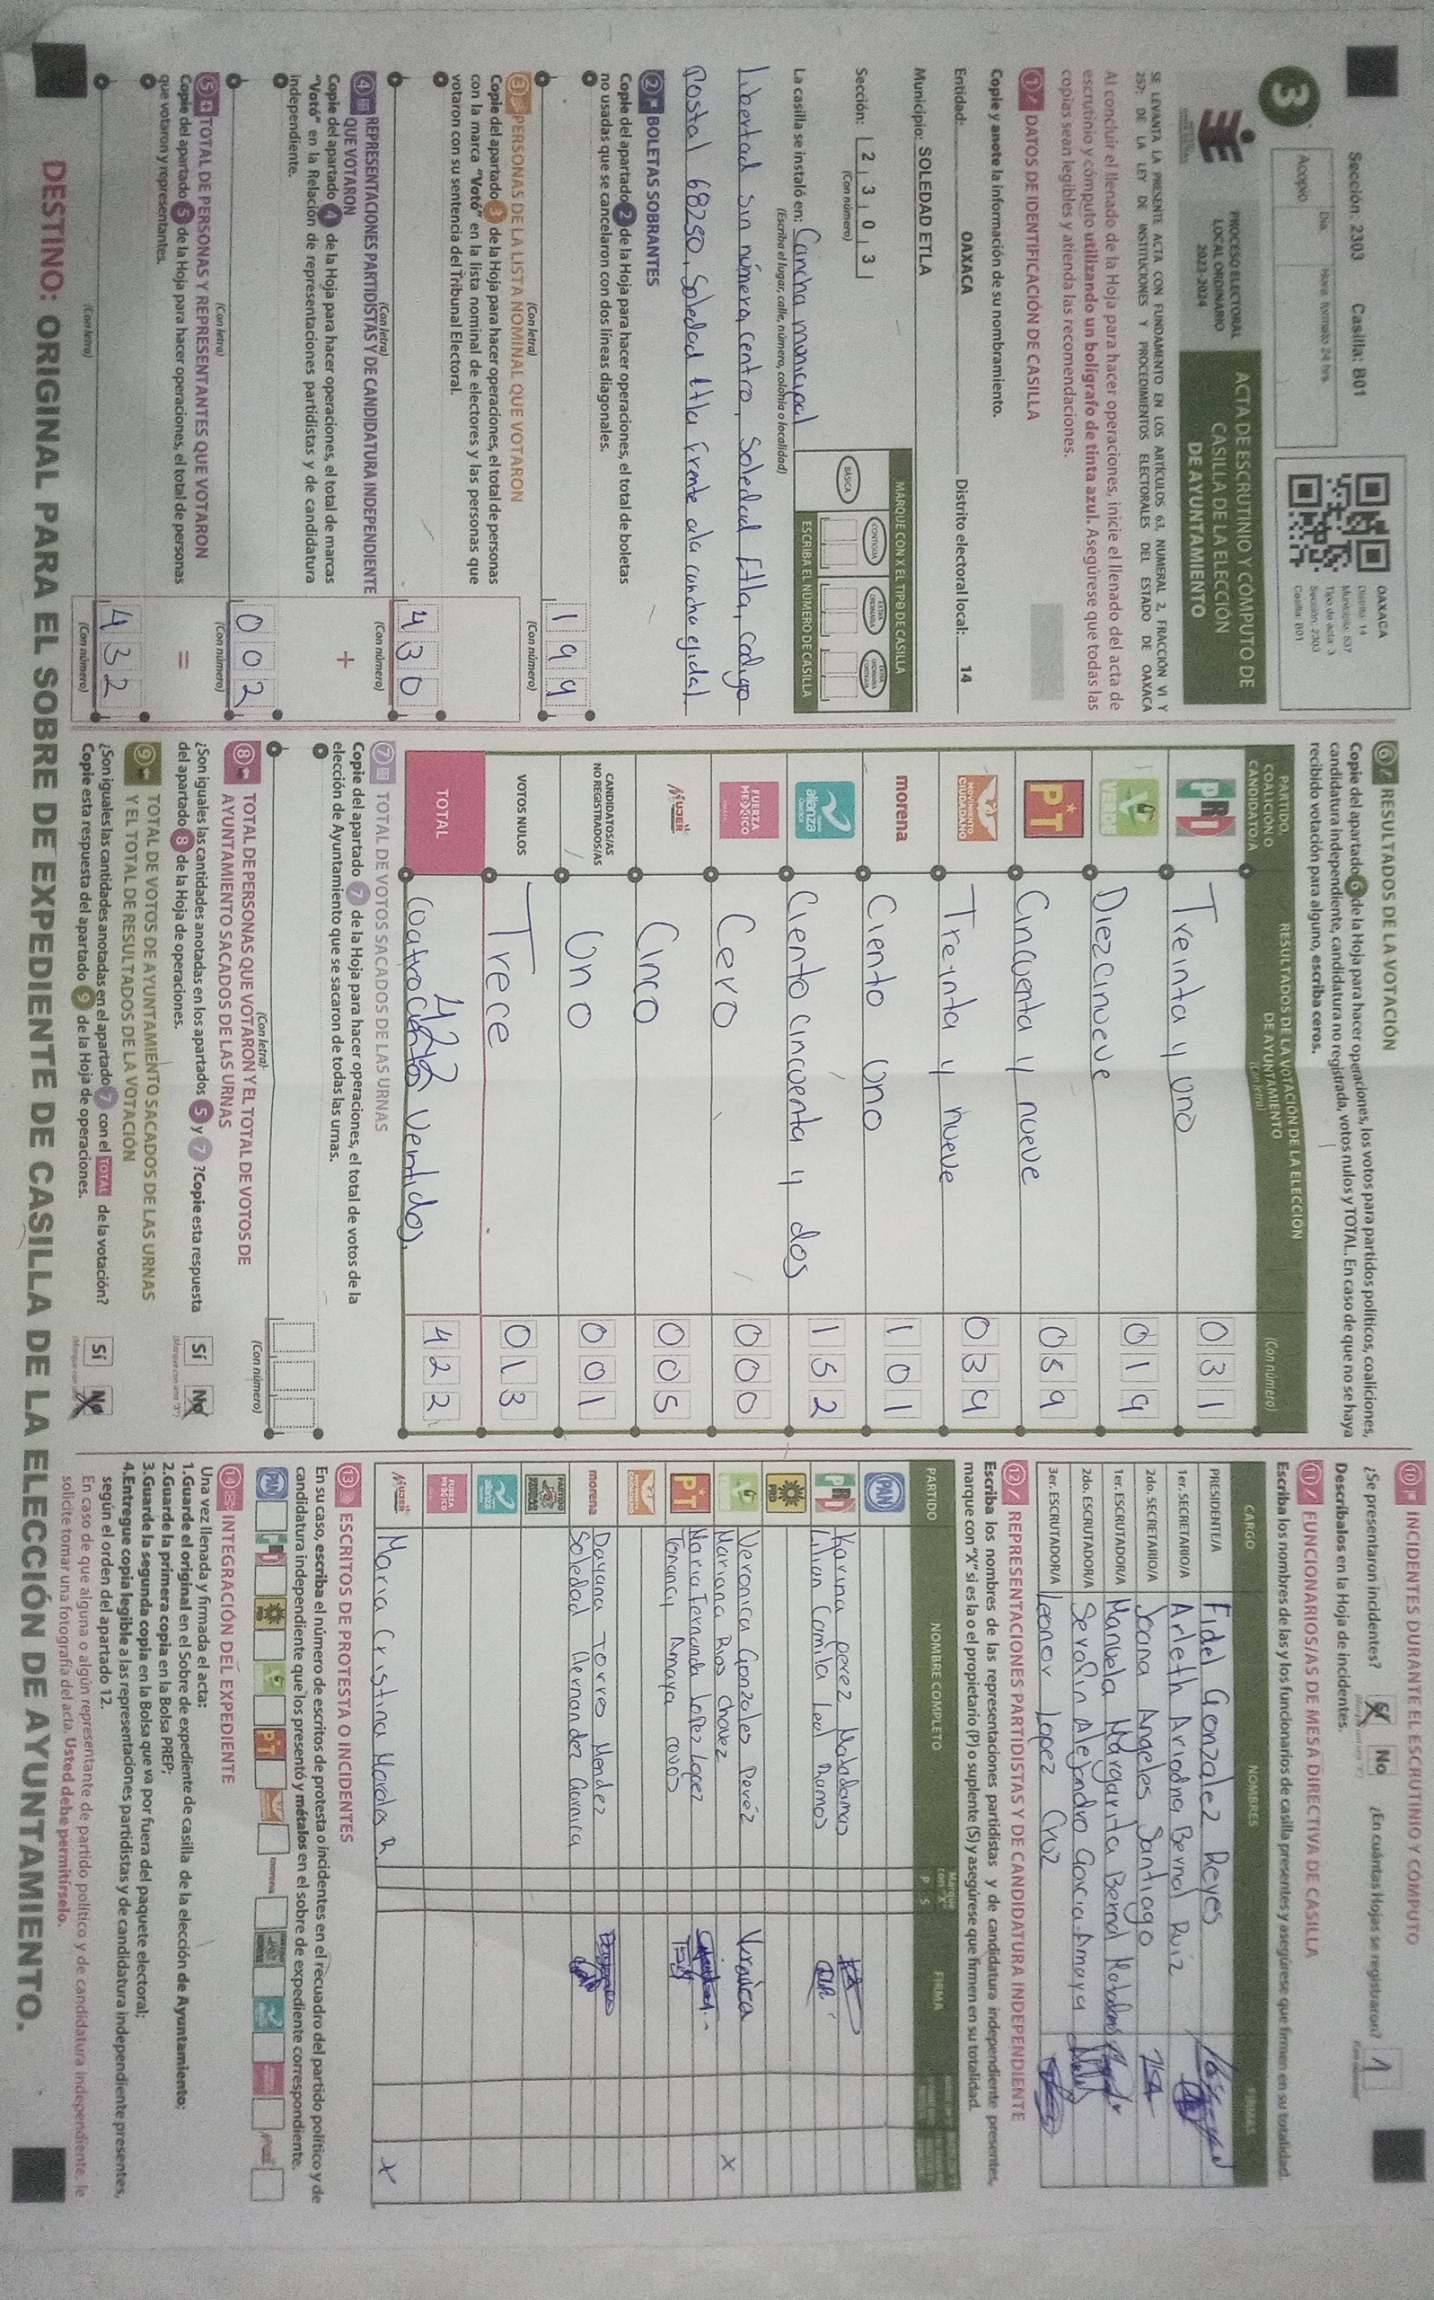 Sección: 2303 Casilla: B01
Día
Hora formato 24 hrs.
3
Acopio
OAXACA
Distrito: 14
Municipio: 537
Tipo de acta: 3
Sección: 2303
Casilla: B01
PROCESO ELECTORAL
LOCAL ORDINARIO
2023-2024
ACTA DE ESCRUTINIO Y CÓMPUTO DE
CASILLA DE LA ELECCIÓN
DE AYUNTAMIENTO
SE LEVANTA LA PRESENTE ACTA CON FUNDAMENTO EN LOS ARTÍCULOS 63, NUMERAL 2, FRACCIÓN VI Y
257; DE LA LEY DE INSTITUCIONES Y PROCEDIMIENTOS ELECTORALES DEL ESTADO DE OAXACA
Al concluir el llenado de la Hoja para hacer operaciones, inicie el llenado del acta de
escrutinio y cómputo utilizando un bolígrafo de tinta azul. Asegúrese que todas las
copias sean legibles y atienda las recomendaciones.
1 DATOS DE IDENTIFICACIÓN DE CASILLA
Copie y anote la información de su nombramiento.
Entidad: OAXACA Distrito electoral local: 14
Municipio: SOLEDAD ETLA
Sección: 2 3 0 3
(Con número)
MARQUE CON X EL TIPO DE CASILLA
BÁSICA CONTIGUA EXTRA ORDINARIA EXTRA ORDINARIA CONTIGUA
ESCRIBA EL NÚMERO DE CASILLA
La casilla se instaló en: Cancha municipal
(Escriba el lugar, calle, número, colonia o localidad)
Libertad sin número, centro, Soledad Etla, codigo
Postal 68250, Soledad Etla frente ala cancha ejidal.
2 BOLETAS SOBRANTES
Copie del apartado 2 de la Hoja para hacer operaciones, el total de boletas
no usadas que se cancelaron con dos líneas diagonales.
199
(Con letra) (Con número)
3 PERSONAS DE LA LISTA NOMINAL QUE VOTARON
Copie del apartado 3 de la Hoja para hacer operaciones, el total de personas
con la marca "Votó" en la lista nominal de electores y las personas que
votaron con su sentencia del Tribunal Electoral.
430
(Con letra) (Con número)
4 REPRESENTACIONES PARTIDISTAS Y DE CANDIDATURA INDEPENDIENTE
QUE VOTARON
+
Copie del apartado 4 de la Hoja para hacer operaciones, el total de marcas
"Votó" en la Relación de representaciones partidistas y de candidatura
independiente.
002
(Con letra) (Con número)
5 TOTAL DE PERSONAS Y REPRESENTANTES QUE VOTARON
=
Copie del apartado 5 de la Hoja para hacer operaciones, el total de personas
que votaron y representantes.
432
(Con letra) (Con número)
6 RESULTADOS DE LA VOTACIÓN
Copie del apartado 6 de la Hoja para hacer operaciones, los votos para partidos políticos, coaliciones,
candidatura independiente, candidatura no registrada, votos nulos y TOTAL. En caso de que no se haya
recibido votación para alguno, escriba ceros.
PARTIDO, COALICIÓN O CANDIDATO/A
RESULTADOS DE LA VOTACIÓN DE LA ELECCIÓN
DE AYUNTAMIENTO
(Con letra) (Con número)
PRI Treinta y uno 031
VERDE Diez cinueve 019
PT Cincuenta y nueve 059
MOVIMIENTO CIUDADANO Treinta y nueve 039
morena Ciento uno 101
nueva alianza Oaxaca Ciento cincuenta y dos 152
FUERZA MEXICO Cero 000
MUJER Cinco 005
CANDIDATOS/AS NO REGISTRADOS/AS Uno 001
VOTOS NULOS Trece 013
422
TOTAL Cuatrocientos Ventidos. 422
7 TOTAL DE VOTOS SACADOS DE LAS URNAS
Copie del apartado 7 de la Hoja para hacer operaciones, el total de votos de la
elección de Ayuntamiento que se sacaron de todas las urnas.
(Con letra) (Con número)
8 TOTAL DE PERSONAS QUE VOTARON Y EL TOTAL DE VOTOS DE
AYUNTAMIENTO SACADOS DE LAS URNAS
¿Son iguales las cantidades anotadas en los apartados 5 y 7 ? Copie esta respuesta
del apartado 8 de la Hoja de operaciones.
Sí No
(Marque con una "X")
9 TOTAL DE VOTOS DE AYUNTAMIENTO SACADOS DE LAS URNAS
Y EL TOTAL DE RESULTADOS DE LA VOTACIÓN
¿Son iguales las cantidades anotadas en el apartado 7 con el TOTAL de la votación?
Copie esta respuesta del apartado 9 de la Hoja de operaciones.
Sí No
10 INCIDENTES DURANTE EL ESCRUTINIO Y CÓMPUTO
¿Se presentaron incidentes? Sí No ¿En cuántas Hojas se registraron? 1
Descríbalos en la Hoja de incidentes.
11 FUNCIONARIOS/AS DE MESA DIRECTIVA DE CASILLA
Escriba los nombres de las y los funcionarios de casilla presentes y asegúrese que firmen en su totalidad.
CARGO NOMBRES FIRMAS
PRESIDENTE/A Fidel Gonzalez Reyes
1er. SECRETARIO/A Arleth Ariadna Bernal Ruiz
2do. SECRETARIO/A Joana Angeles Santiago
1er. ESCRUTADOR/A Manuela Margarita Bernal Matadamas
2do. ESCRUTADOR/A Serafin Alejandro Garcia Amaya
3er. ESCRUTADOR/A Leonor Lopez Cruz
12 REPRESENTACIONES PARTIDISTAS Y DE CANDIDATURA INDEPENDIENTE
Escriba los nombres de las representaciones partidistas y de candidatura independiente presentes,
marque con "X" si es la o el propietario (P) o suplente (S) y asegúrese que firmen en su totalidad.
PARTIDO NOMBRE COMPLETO Marque con "X" P S FIRMA
PAN
PRI Karina perez Matadamas
Lilian Camila Leal Ramos
PRD
VERDE Veronica Gonzales Pérez Veronica
Mariana Rios Chavez X
PT Maria Fernanda Lopez Lopez
Tonancy Amaya
MOVIMIENTO CIUDADANO
morena Dayana Torres Mendez
Soledad Hernandez Garnica
nueva alianza
FUERZA MEXICO
MUJER Maria Cristina Morales R. X
13 ESCRITOS DE PROTESTA O INCIDENTES
En su caso, escriba el número de escritos de protesta o incidentes en el recuadro del partido político y de
candidatura independiente que los presentó y métalos en el sobre de expediente correspondiente.
PAN PRI PRD VERDE PT morena
14 INTEGRACIÓN DEL EXPEDIENTE
Una vez llenada y firmada el acta:
1.Guarde el original en el Sobre de expediente de casilla de la elección de Ayuntamiento;
2.Guarde la primera copia en la Bolsa PREP;
3.Guarde la segunda copia en la Bolsa que va por fuera del paquete electoral;
4.Entregue copia legible a las representaciones partidistas y de candidatura independiente presentes,
según el orden del apartado 12.
En caso de que alguna o algún representante de partido político y de candidatura independiente, le
solicite tomar una fotografía del acta, Usted debe permitírselo.
DESTINO: ORIGINAL PARA EL SOBRE DE EXPEDIENTE DE CASILLA DE LA ELECCIÓN DE AYUNTAMIENTO.